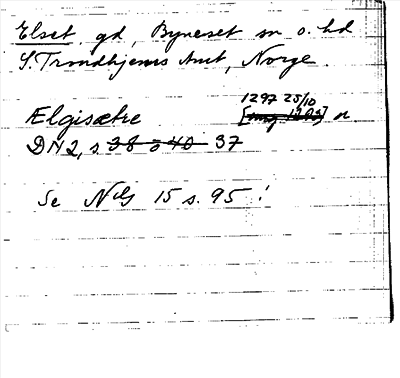 Elset, gd, Byneset sn o. hd
S. Trondhjems Amt, Norge.
1297 25/10
Elgisætre or.
DN 2, s. 38 o 40 37
Se NG 15 s. 95!